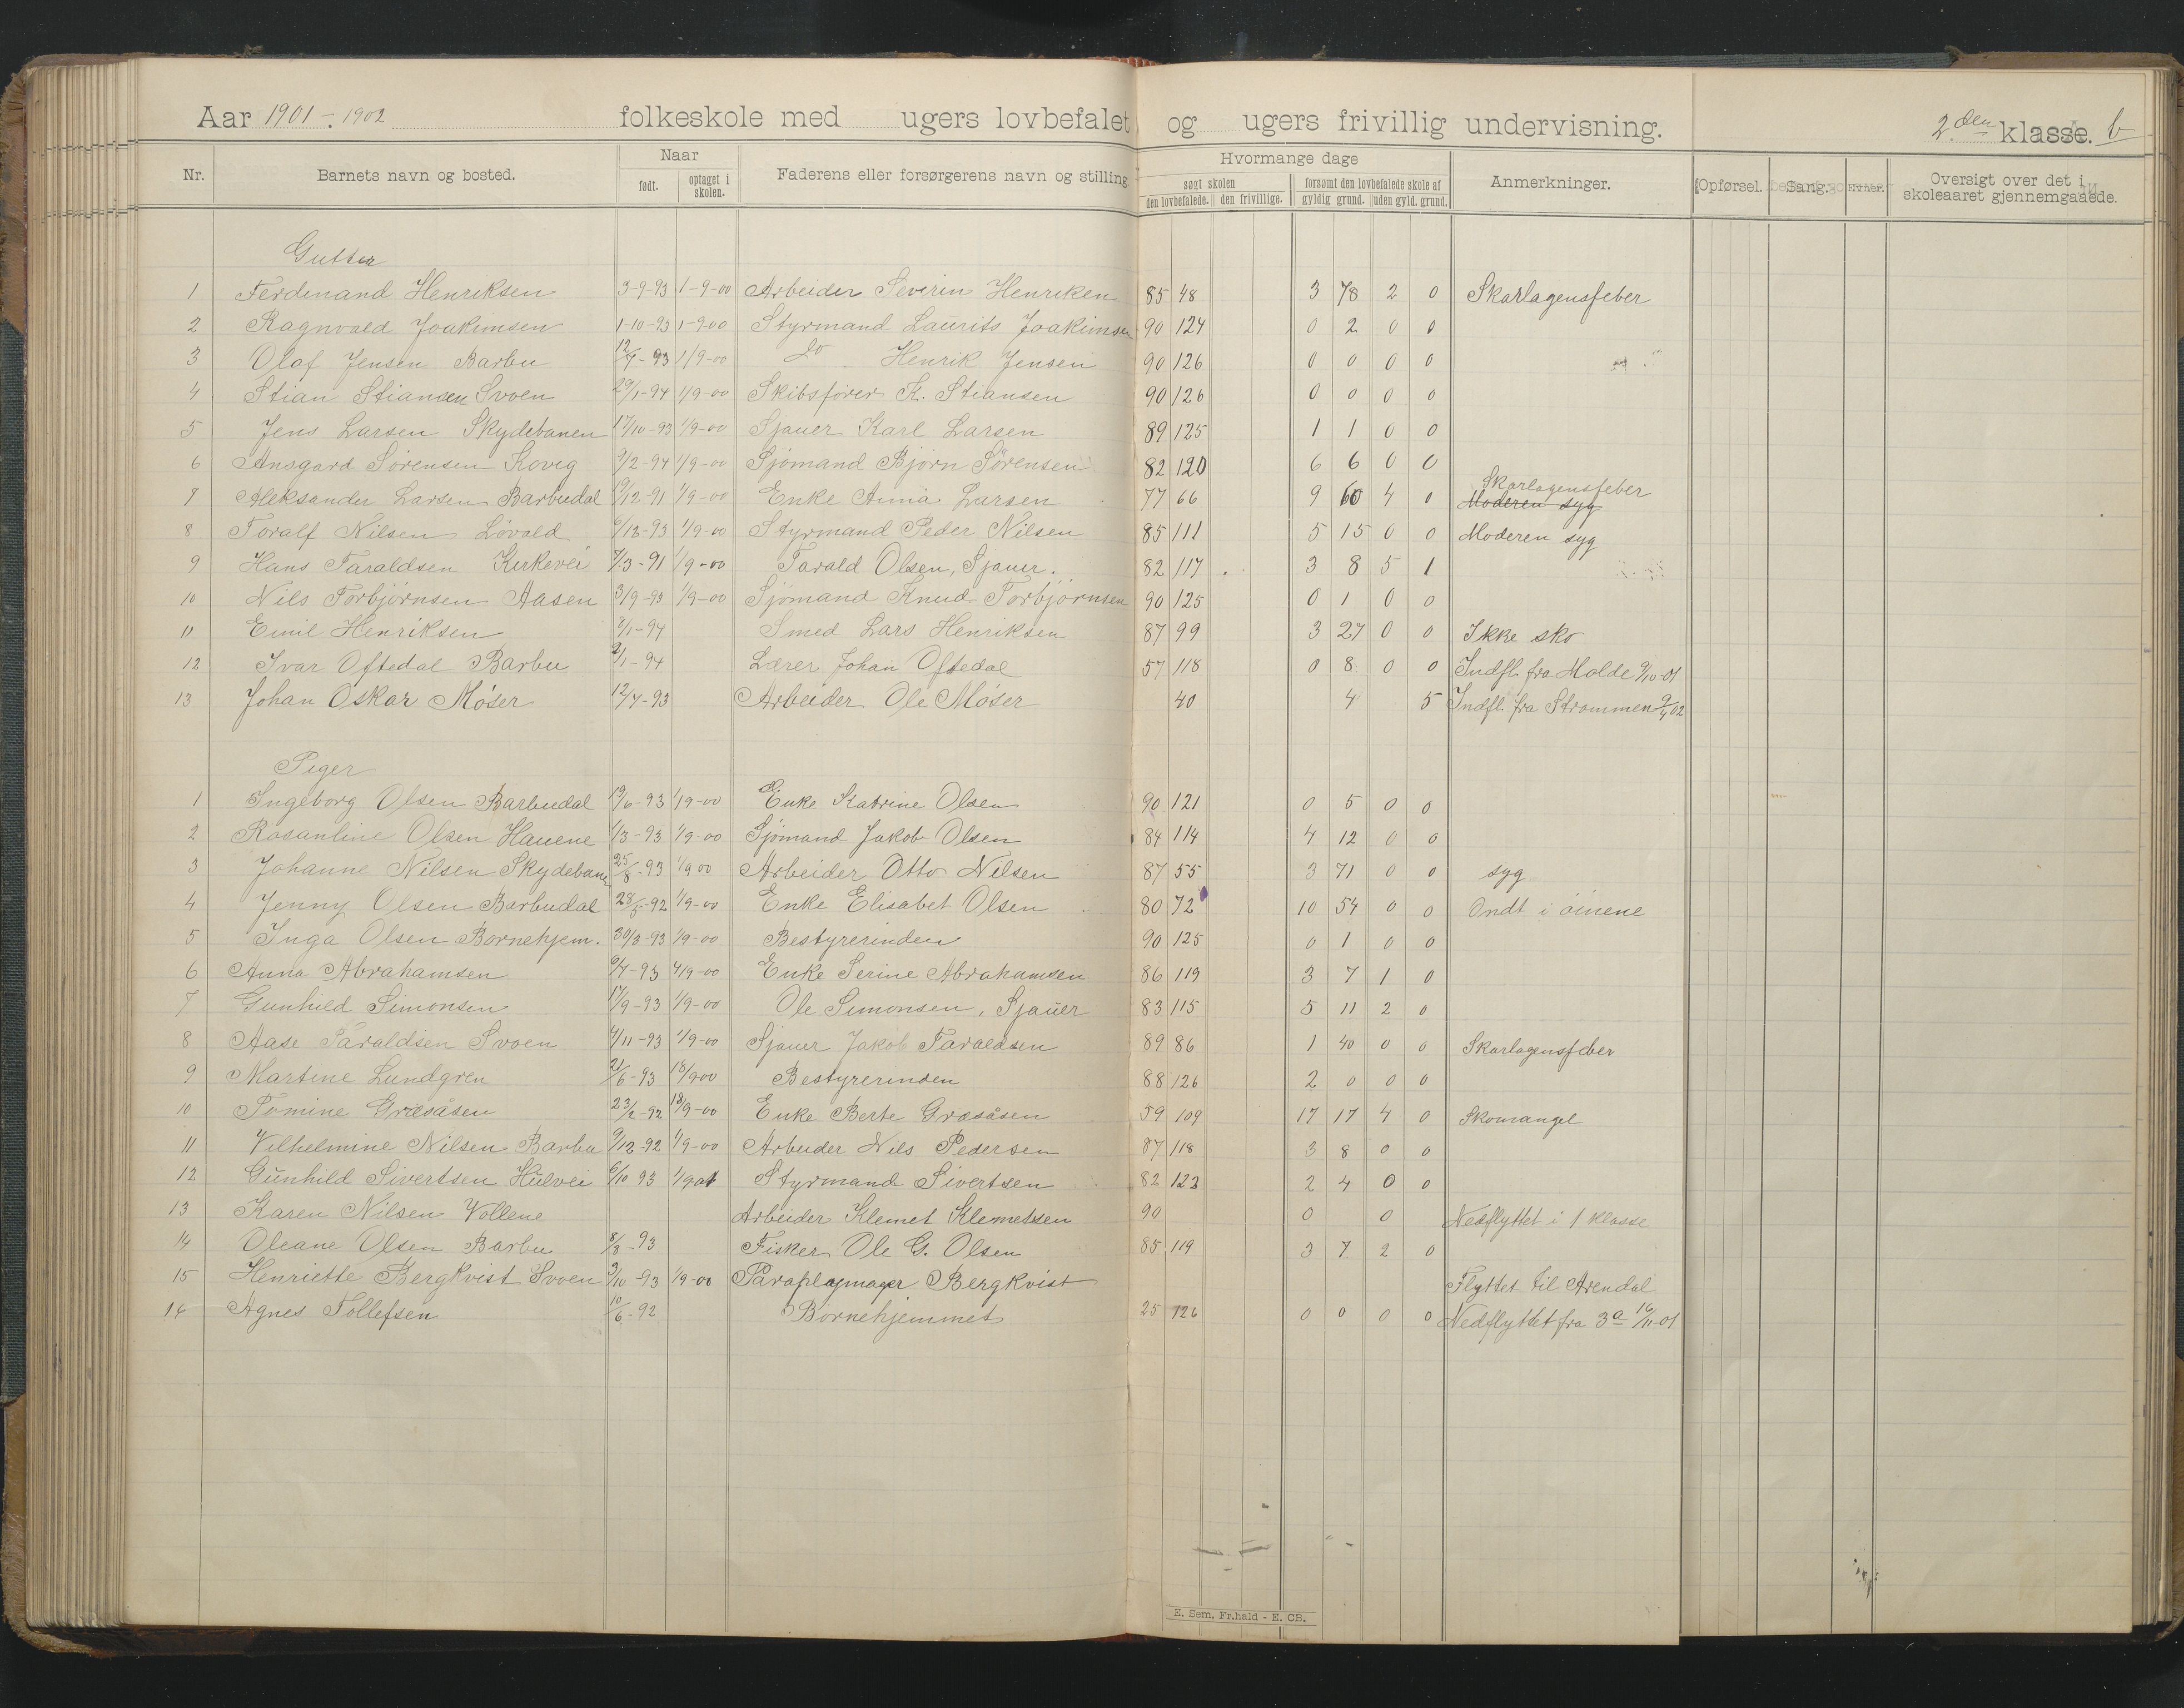 Aar 1901 - 1902 folkeskole med ugers lovbefalet og ugers frivillig undervisning. 2.den klasse. b
Nr. Barnets navn og bosted. Naar født. optaget i skolen. Faderens eller forsørgerens navn og stilling Hvormange dage søgt skolen den lovbefalede. den frivillige. forsømt den lovbefalede skole af gyldig grund. uden gyld. grund. Anmerkninger. Opførsel. Sang. Oversigt over det i skoleaaret gjennemgaaede.
Gutter
1 Ferdinand Henriksen 3-9-93 1-9-00 Arbeider Severin Henriken 85 48 3 78 2 0 Skarlagensfeber
2 Ragnvald Joakimsen 1-10-93 1-9-00 Styrmand Laurits Joakimsen 90 124 0 2 0 0
3 Olaf Jensen Barbu 12/7-93 1/9-00 Do Henrik Jensen 90 126 0 0 0 0
4 Stian Stiansen Svoen 29/1-94 1/9-00 Skibsfører K. Stiansen 90 126 0 0 0 0
5 Jens Larsen Skydebanen 17/10-93 1/9-00 Sjauer Karl Larsen 89 125 1 1 0 0
6 Ansgard Sørensen 9/2-94 1/9-00 Sjømand Bjørn Sørensen 82 120 6 6 0 0
7 Aleksander Larsen Barbudal 19/12-91 1/9-00 Enke Anna Larsen 77 66 9 60 4 0 Skarlagensfeber Moderen syg
8 Toralf Nilsen Løvold 6/12-93 1/9-00 Styrmand Peder Nilsen 85 111 5 15 0 0 Moderen syg
9 Hans Taraldsen Kirkevei 7/3-91 1/9-00 Tarald Olsen, Sjauer. 82 117 3 8 5 1
10 Nils Torbjørnsen Aasen 3/9-93 1/9-00 Sjømand Knud Torbjørnsen 90 125 0 1 0 0
11 Emil Henriksen 2/1-94 Smed Lars Henriksen 87 99 3 27 0 0 Ikke sko
12 Ivar Oftedal Barbu 2/1-94 Lærer Johan Oftedal 57 118 0 8 0 0 Indfl. fra Molde 9/10-01
13 Johan Oskar Møser 12/7-93 Arbeider Ole Møser 40 4 5 Indfl. fra Strømmen 9/4 02
Piger
1 Ingeborg Olsen Barbudal 19/6-93 1/9-00 Enke Katrine Olsen 90 121 0 5 0 0
2 Rosanline Olsen Hauene 1/3-93 1/9-00 Sjømand Jakob Olsen 84 114 4 12 0 0
3 Johanne Nilsen Skydebane 25/8-93 1/9 00 Arbeider Otto Nilsen 87 55 3 71 0 0 syg
4 Jenny Olsen Barbudal 28/5-92 1/9-00 Enke Elisabet Olsen 80 72 10 54 0 0 Ondt i øinene
5 Inga Olsen Børnehjem. 30/3-93 1/9-00 Bestyrerinden 90 125 0 1 0 0
6 Anna Abrahamsen 6/7-93 4/9-00 Enke Serine Abrahamsen 86 119 3 7 1 0
7 Gunhild Simonsen 17/9-93 1/9-00 Ole Simonsen, Sjauer 83 115 5 11 2 0
8 Aase Taraldsen Svoen 4/11-93 1/9-00 Sjauer Jakob Taraldsen 89 86 1 40 0 0 Skarlagensfeber
9 Martine Lundgren 21/6-93 18/9 00 Bestyrerinden 88 126 2 0 0 0
10 Tomine Græsåsen 23/2-92 18/9-00 Enke Berte Græsåsen 59 109 17 17 4 0 Skomangel
11 Vilhelmine Nilsen Barbu 9/12-92 1/9-00 Arbeider Nils Pedersen 87 118 3 8 0 0
12 Gunhild Sivertsen Hulvei 6/10 93 1/9 01 Styrmand Sivertsen 82 122 2 4 0 0
13 Karen Nilsen Vollene Arbeider Klemet Klemetsen 90 0 0 Nedflyttet i 1 klasse
14 Oleane Olsen Barbu 8/3-93 Fisker Ole G. Olsen 85 119 3 7 2 0
15 Henriette Bergkvist Svoen 2/10-93 1/9-00 Paraplymager Bergkvist Flyttet til Arendal
16 Agnes Tollefsen 10/6-92 Børnehjemmet 25 126 0 0 0 0 Nedflyttet fra 3a 16/11-01
E. Sem, Fr.hald - E. CB.